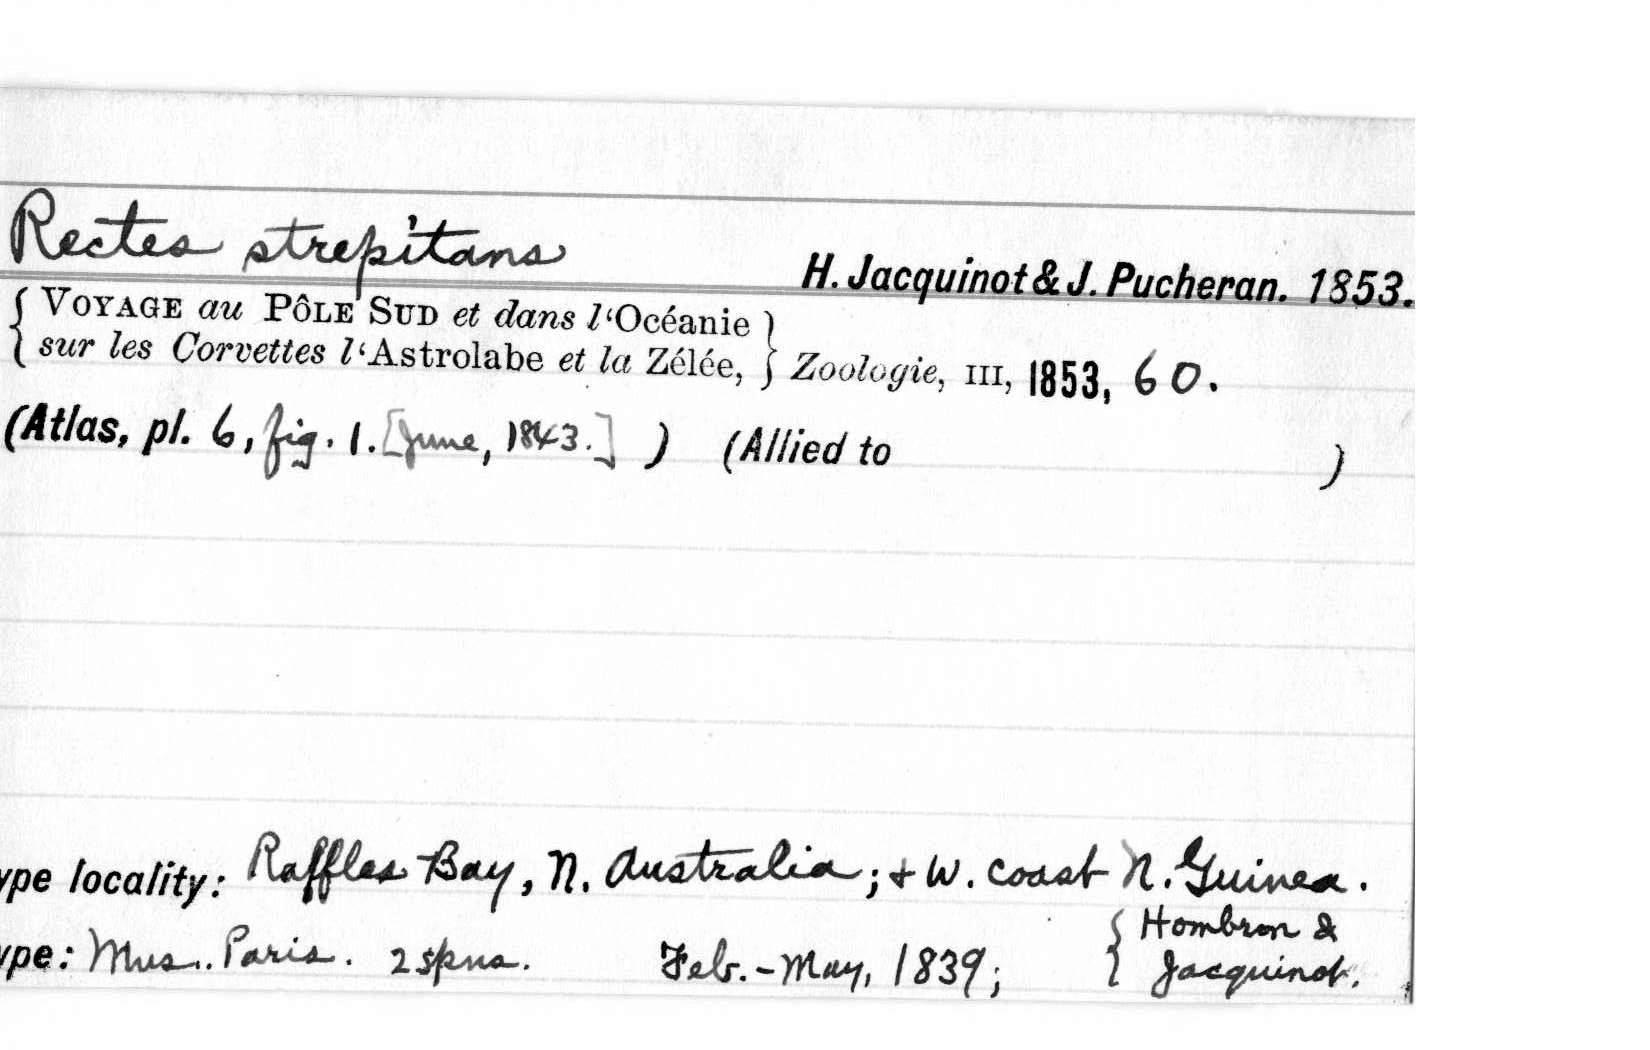 Rectes strepitans
H. Jacquinot & J. Pucheran. 1853.
{ VOYAGE au PÔLE SUD et dans l‘Océanie }
{ sur les Corvettes l‘Astrolabe et la Zélée, } Zoologie, III, 1853, 60.
(Atlas, pl. 6, fig. 1. [June, 1843.] ) (Allied to )
ype locality: Raffles Bay, N. Australia; & W. coast N. Guinea.
ype: Mus. Paris. 2 spns. Feb. - May, 1839; { Hombron &
Jacquinot.